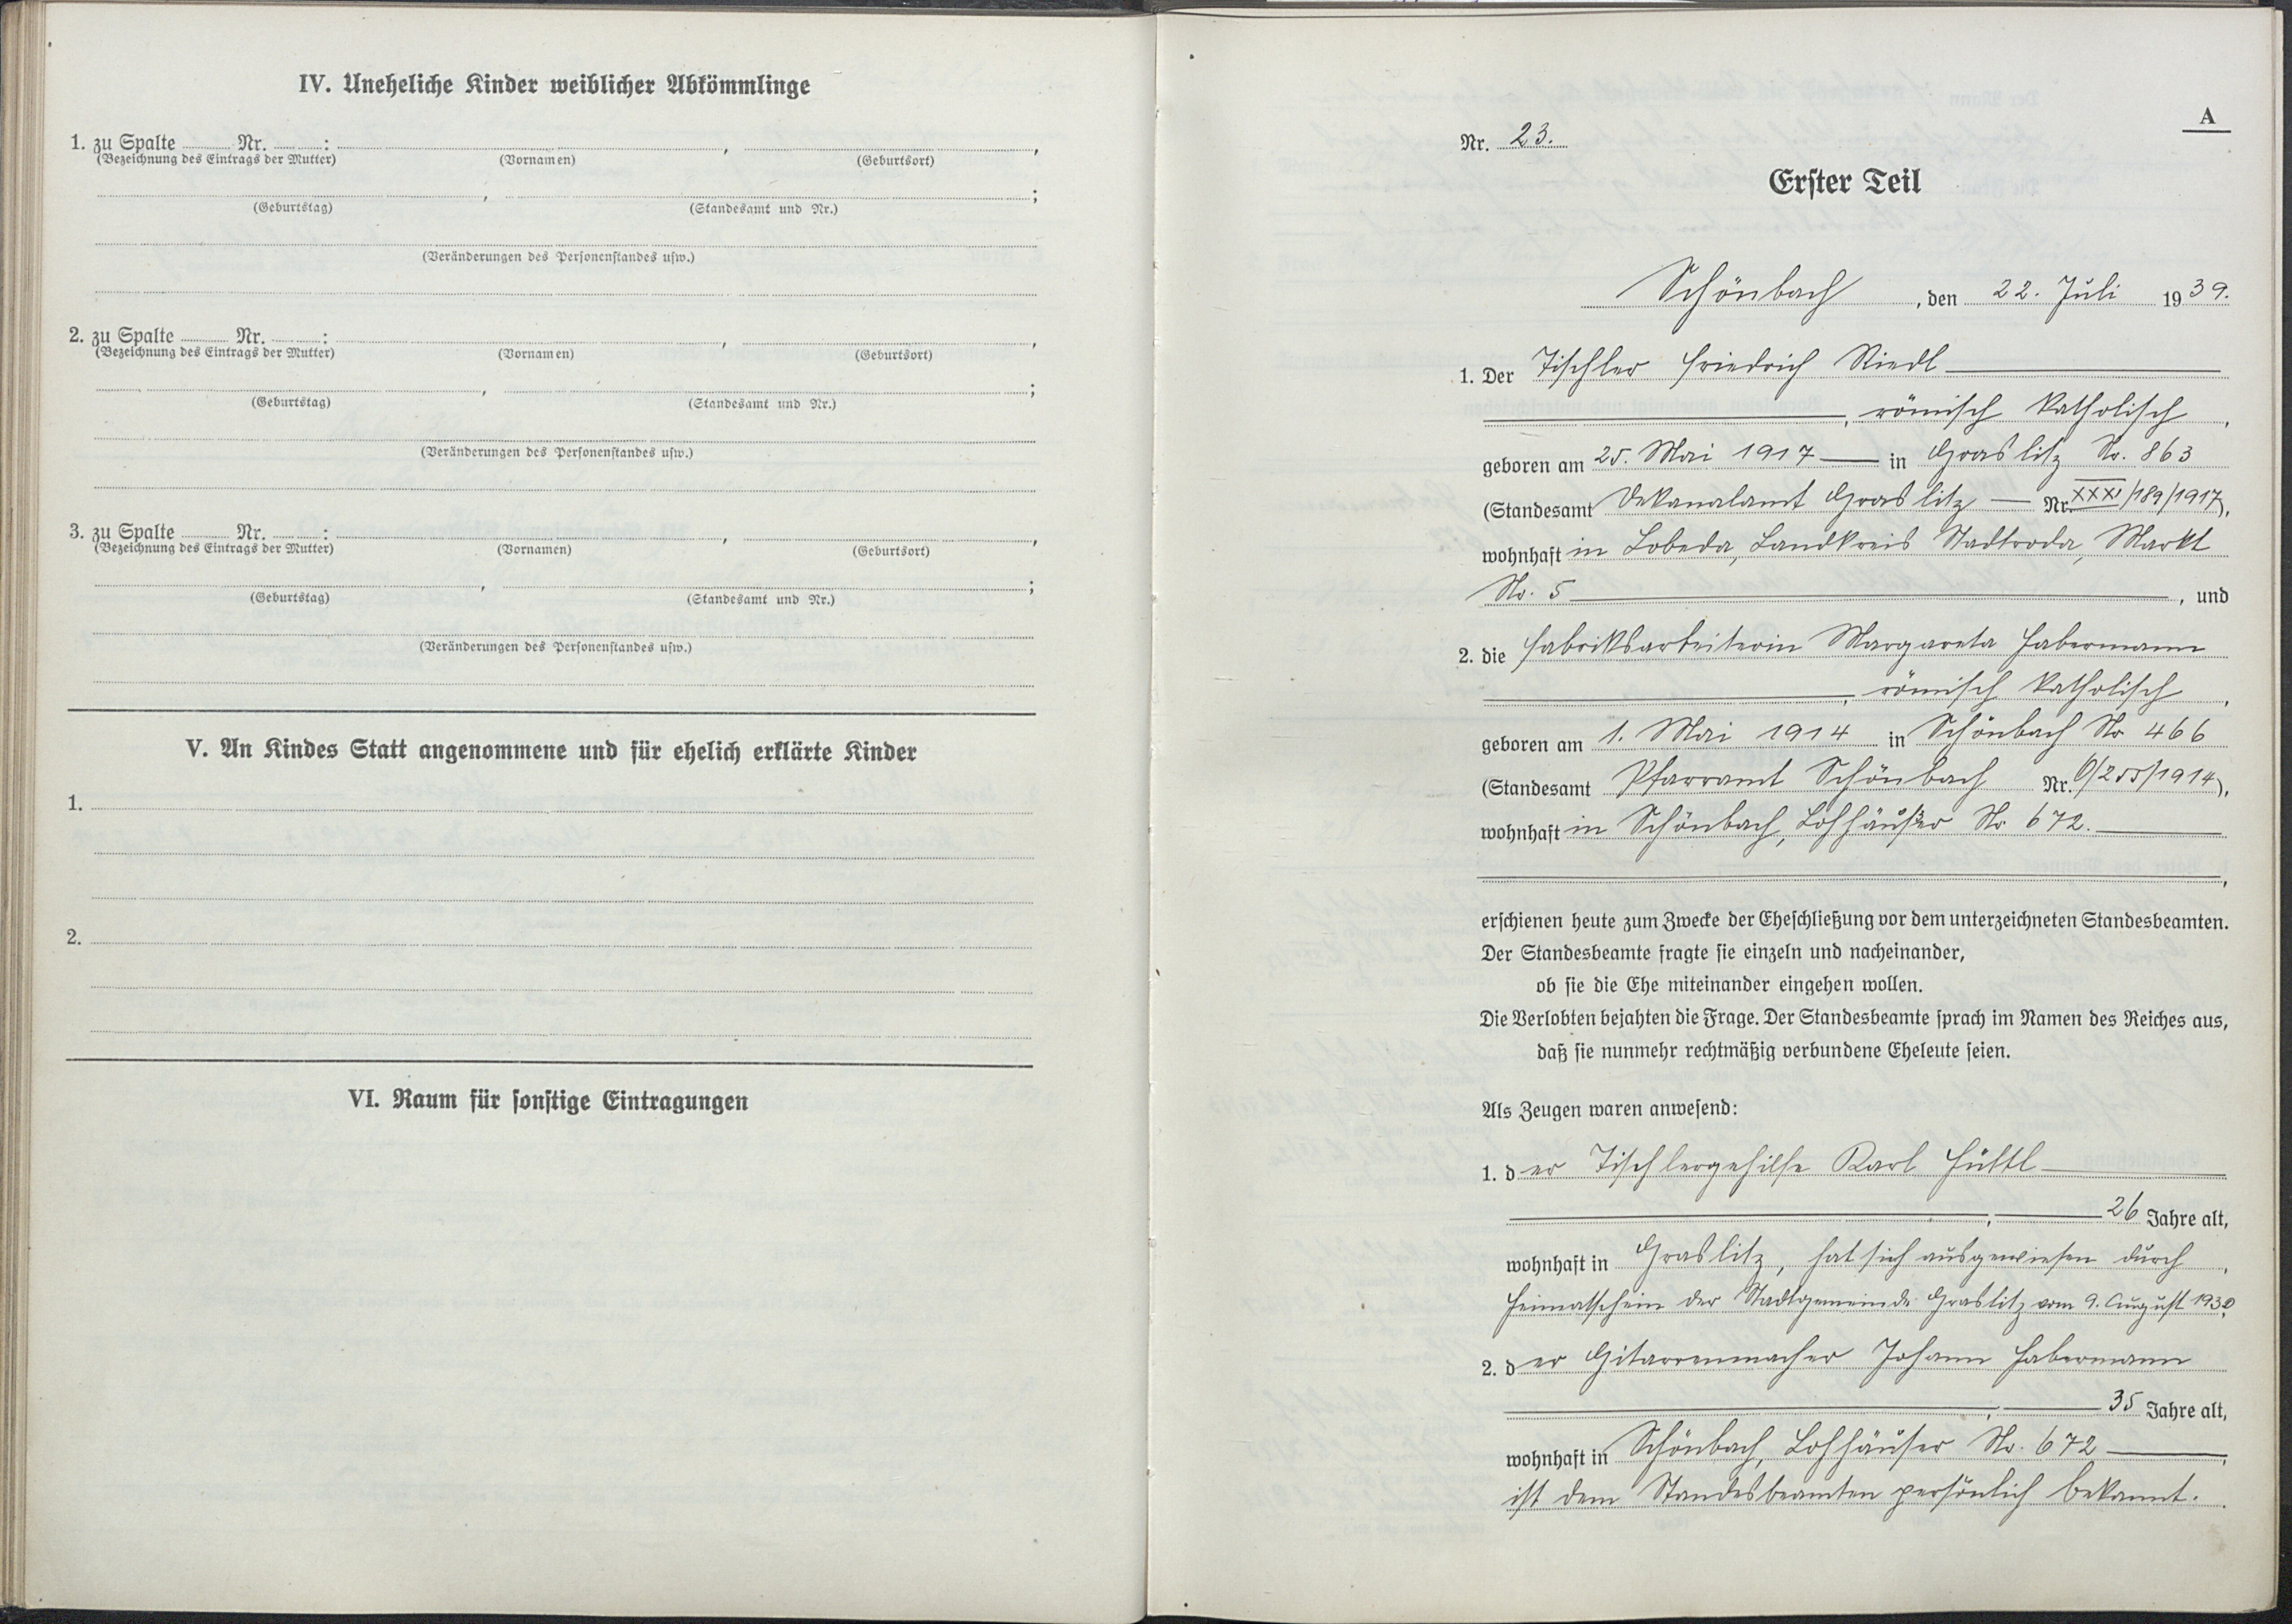 IV. Uneheliche Kinder weiblicher Abkömmlinge
1. zu Spalte Nr. : , ,
(Bezeichnung des Eintrags der Mutter) (Vornamen) (Geburtsort)
, ;
(Geburtstag) (Standesamt und Nr.)
(Veränderungen des Personenstandes usw.)
2. zu Spalte Nr. : , ,
(Bezeichnung des Eintrags der Mutter) (Vornamen) (Geburtsort)
, ;
(Geburtstag) (Standesamt und Nr.)
(Veränderungen des Personenstandes usw.)
3. zu Spalte Nr. : , ,
(Bezeichnung des Eintrags der Mutter) (Vornamen) (Geburtsort)
, ;
(Geburtstag) (Standesamt und Nr.)
(Veränderungen des Personenstandes usw.)
V. An Kindes Statt angenommene und für ehelich erklärte Kinder
1.
2.
VI. Raum für sonstige Eintragungen
A
Nr. 23.
Erster Teil
Schönbach, den 22. Juli 1939.
1. Der Tischler Friedrich Riedl
, römisch katholisch,
geboren am 25. Mai 1917 in Graslitz Nr. 863
(Standesamt Dekanalamt Graslitz Nr. XXXI/189/1917),
wohnhaft in Lobeda, Landkreis Stadtroda, Markt
Nr. 5, und
2. die Fabriksarbeiterin Margareta Habermann
, römisch katholisch,
geboren am 1. Mai 1914 in Schönbach Nr 466
(Standesamt Pfarramt Schönbach Nr. 6/255/1914),
wohnhaft in Schönbach, Lohhäuser Nr 672.
,
erschienen heute zum Zwecke der Eheschließung vor dem unterzeichneten Standesbeamten.
Der Standesbeamte fragte sie einzeln und nacheinander,
ob sie die Ehe miteinander eingehen wollen.
Die Verlobten bejahten die Frage. Der Standesbeamte sprach im Namen des Reiches aus,
daß sie nunmehr rechtmäßig verbundene Eheleute seien.
Als Zeugen waren anwesend:
1. der Tischlergehilfe Karl Hüttl
, 26 Jahre alt,
wohnhaft in Graslitz, hat sich ausgewiesen durch,
Heimatschein der Stadtgemeinde Graslitz vom 9. August 1930.
2. der Gitarrenmacher Johann Habermann
, 35 Jahre alt,
wohnhaft in Schönbach, Lohhäuser Nr. 672,
ist dem Standesbeamten persönlich bekannt.